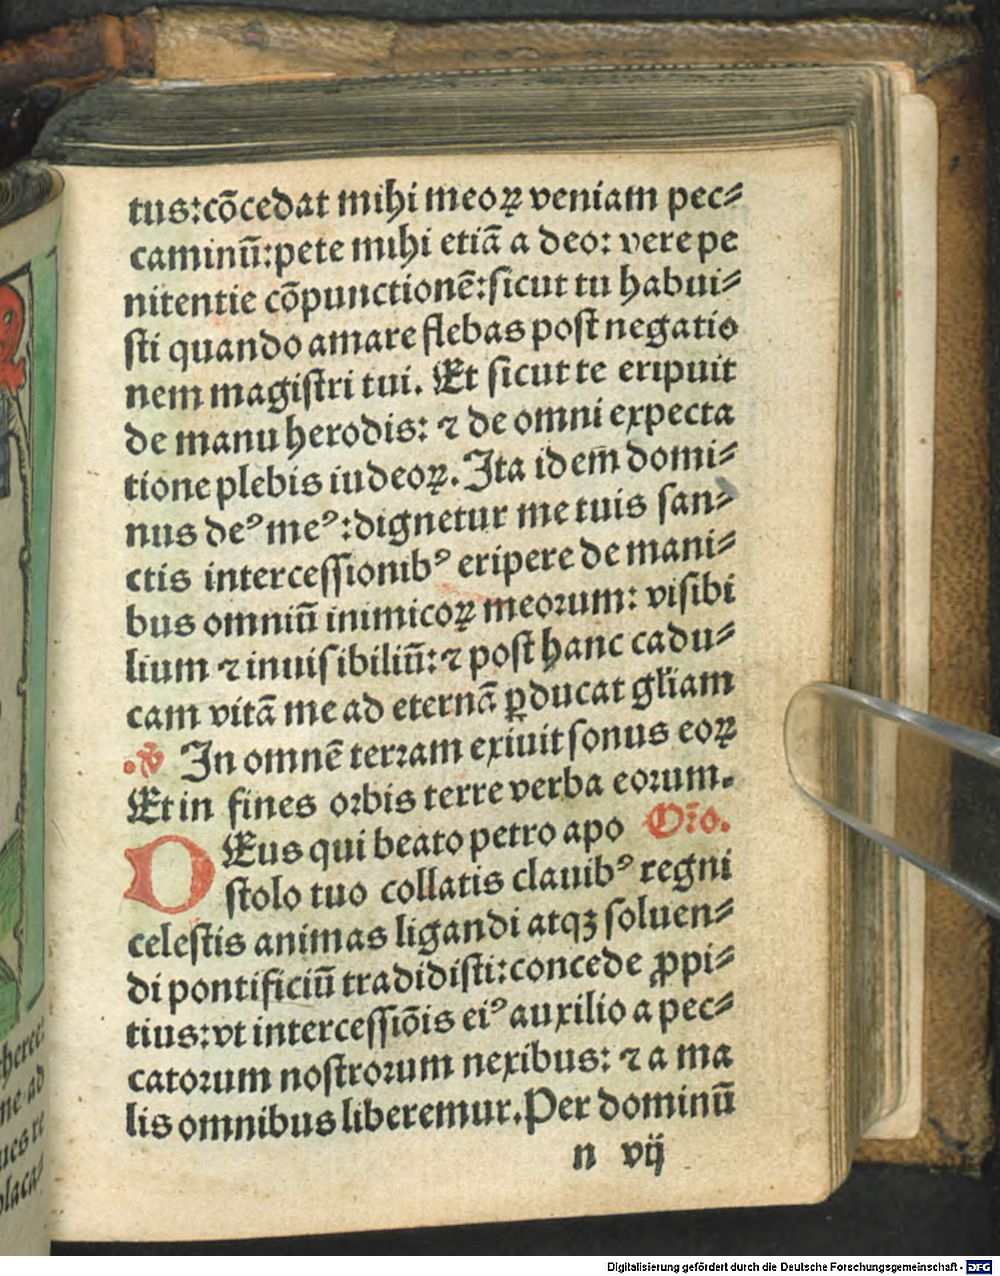 tus:cõcedat mihi meoꝝ veniam pec⸗
caminũ:pete mihi etiã a deo: vere pe
nitentie cõpunctionẽ:sicut tu habui⸗
sti quando amare flebas post negatio
nem magistri tui. Et sicut te eripuit
de manu herodis: ⁊ de omni expecta
tione plebis iudeoꝝ. Ita idem̃ domi⸗
nus deꝰ meꝰ:dignetur me tuis san⸗
ctis intercessionibꝰ eripere de mani⸗
bus omniũ inimicoꝝ meorum: visibi
lium ⁊ inuisibiliũ:⁊ post hanc cadu⸗
cam vitã me ad eternã ꝑducat gl̃iam
.℣ In omnẽ terram exiuit sonus eoꝝ
Et in fines orbis terre verba eorum.
DEus qui beato petro apo Or̃o.
stolo tuo collatis clauibꝰ regni
celestis animas ligandi atqꝫ soluen⸗
di pontificiũ tradidisti:concede ꝓpi⸗
tius:vt intercessiõis eiꝰ auxilio a pec⸗
catorum nostrorum nexibus: ⁊ a ma
lis omnibus liberemur.Per dominũ
n vij
Digitalisierung gefördert durch die Deutsche Forschungsgemeinschaft - DFG